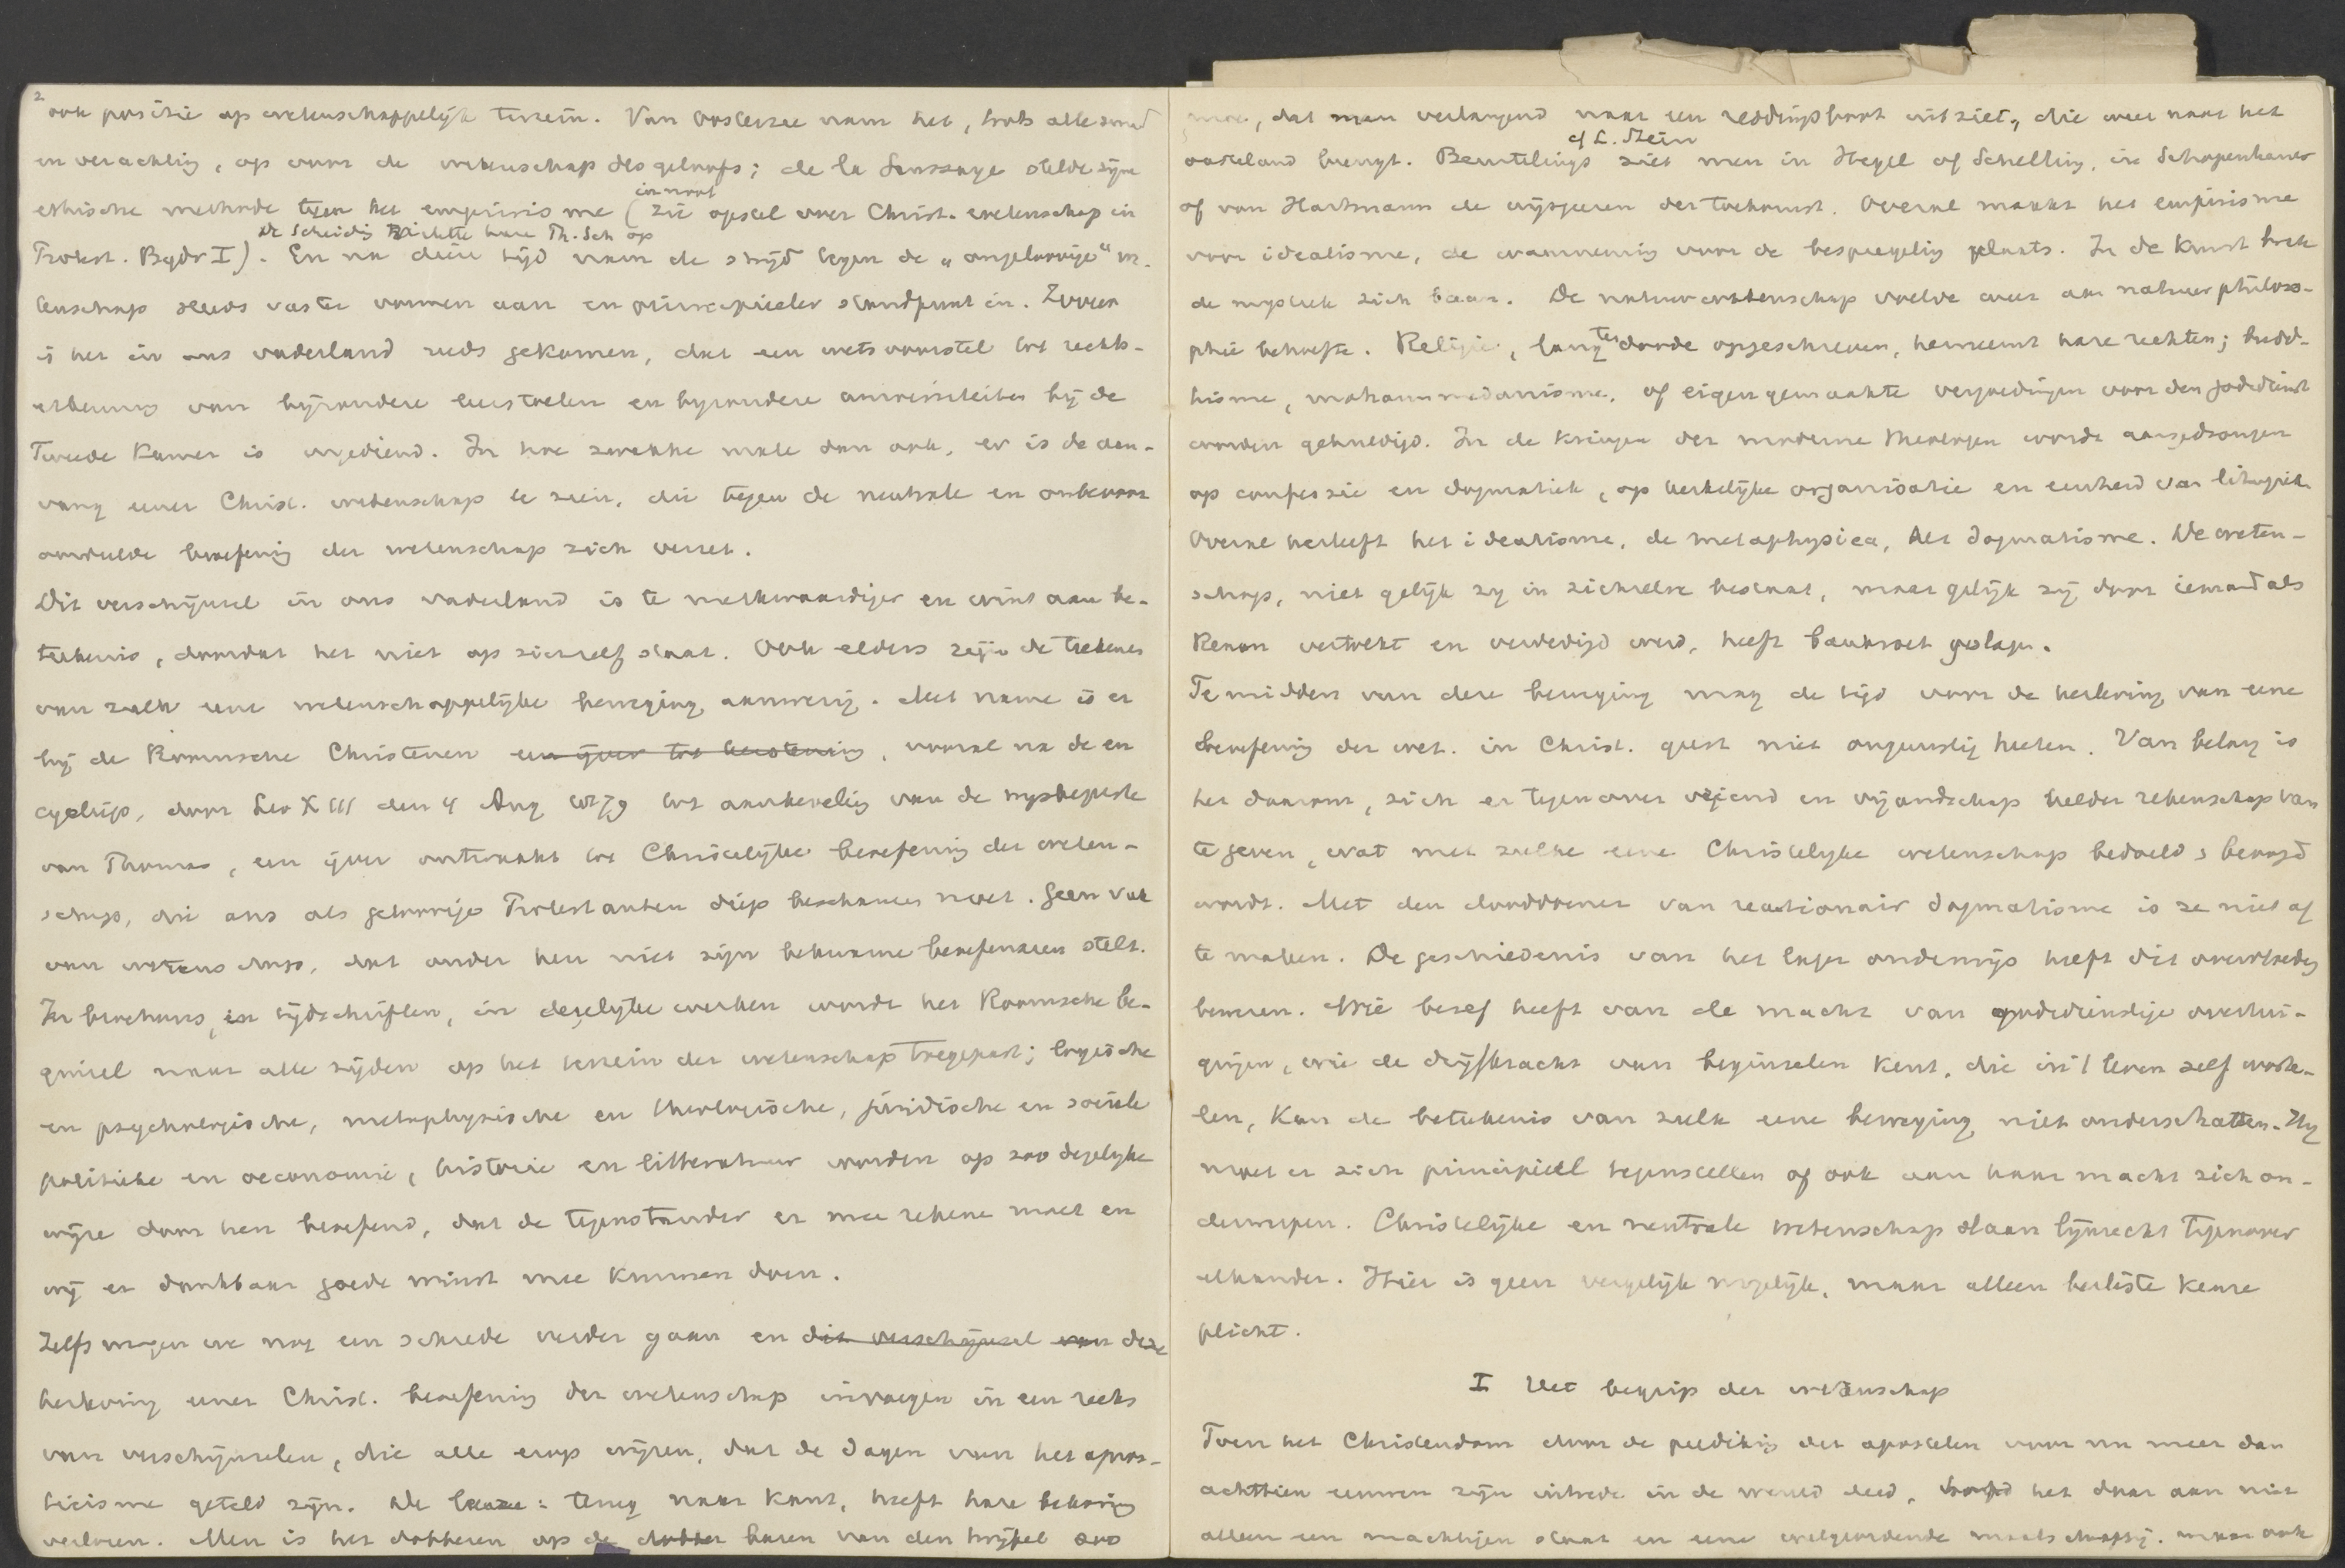 2
ook positie op wetenschappelijk terrein. Van Oosterzee nam het, trots alle smaad
en verachting, op voor de wetenschap des geloofs; de la Saussaye stelde zijne
ethische methode tegen het empirisme (zie opstel over Christ. wetenschap in
in noot
De Scheiding Richtte hare Th. Sch op
Protest. Bijdr I). En na dien tijd nam de strijd tegen de „ongeloovige" we-
tenschap steeds vaster vormen aan en principieeler standpunt in. Zoover
is het in ons vaderland reeds gekomen, dat een wetsvoorstel tot rechts-
erkenning van bijzondere leerstoelen en bijzondere universiteiten bij de
Tweede Kamer is ingediend. In hoe zwakke mate dan ook, er is de aan-
vang eener Christ. wetenschap te zien, die tegen de neutrale en onbevoor-
oordeelde beoefening der wetenschap zich verzet.
Dit verschijnsel in ons vaderland is te merkwaardiger en wint aan be-
teekenis, doordat het niet op zichzelf staat. Ook elders zijn de teekenen
van zulk eene wetenschappelijke beweging aanwezig. Met name is er
bij de Roomsche Christenen een ijver tot, vooral na de en
cycliqe, door Leo XIII den 4 Aug 1879 tot aanbeveling van de
van Thomas, een ijver ontwaakt tot Christelijke beoefening der weten-
schap, die ons als geloovige Protestanten diep beschamen moet. Geen vak
van wetenschap, dat onder hen niet zijn bekwame beoefenaren stelt.
In brochures, in tijdschriften, in degelijke werken wordt het Roomsche be-
ginsel naar alle zijden op het terrein der wetenschap toegepast; logische
en psychologische, metaphysische en theologische, juridische en sociale
politieke en oeconomie, historie en litteratuur worden op zoo degelijke
wijze door hen beoefend, dat de tegenstander er mee rekene moet en
wij er dankbaar goede winst mee kunnen doen.
Zelfs mogen we nog een schrede verder gaan en dit verschijnsel van deze
herleving eener Christ. beoefening der wetenschap invoegen in een reeks
van verschijnselen, die alle erop wijzen, dat de dagen van het agnos-
ticisme geteld zijn. De leuze: terug naar Kant, heeft hare bekoring
verloren. Men is het dobberen op de baren van den twijfel zoo
moe, dat men verlangend naar een reddingsboot uitziet, die weer naar het
cf L. Stein
vasteland brengt. Beurtelings ziet men in Hegel of Schelling, in Schopenhauer
of von Hartmann de wijsgeeren der toekomst. Overal maakt het empirisme
voor idealisme, de waarneming voor de bespiegeling plaats. In de kunst breekt
de mystiek zich baan. De natuurwetenschap voelde weer aan natuurphiloso-
phie behoefte. Religie, lang ten doode opgeschreven, herneemt hare rechten; budd-
hisme, mohammedanisme, of eigengemaakte vergoedingen voor den godsdienst
worden gehuldigd. In de kringen der moderne theologen wordt aangedrongen
op confessie en dogmatiek, op kerkelijke organisatie en eenheid van liturgie.
Overal herleeft het idealisme, de metaphysica, het dogmatisme. De weten-
schap, niet gelijk zij in zichzelve bestaat, maar gelijk zij door iemand als
Renan vertolkt en verdedigd werd, heeft bankroet geslagen.
Te midden van deze beweging mag de tijd voor de herleving van eene
beoefening der wet. in Christ. geest niet ongunstig heeten. Van belang is
het daarom, zich er tegenover vriend en vijandschap helder rekenschap van
te geven, wat met zulke eene Christelijke wetenschap bedoeld & beoogd
wordt. Met den dooddoener van reactionair dogmatisme is ze niet af
te maken. De geschiedenis van het lager onderwijs heeft dit overvloedig
bewezen. Wie besef heeft van de macht van godsdienstige overtui-
gingen, wie de drijfkracht van beginselen kent, die in 't leven zelf worte-
len, kan de beteekenis van zulk eene beweging niet onderschatten. Hij
moet er zich principieel tegenstellen of ook aan haar macht zich on-
derwerpen. Christelijke en neutrale wetenschap staan lijnrecht tegenover
elkander. Hier is geen vergelijk mogelijk, maar alleen besliste keuze
plicht.
I Het begrip der wetenschap
Toen het Christendom door de prediking der apostelen voor nu meer dan
achttien eeuwen zijn intrede in de wereld deed, het daar aan niet
alleen een machtigen staat en eene welgeordende maatschappij, maar ook